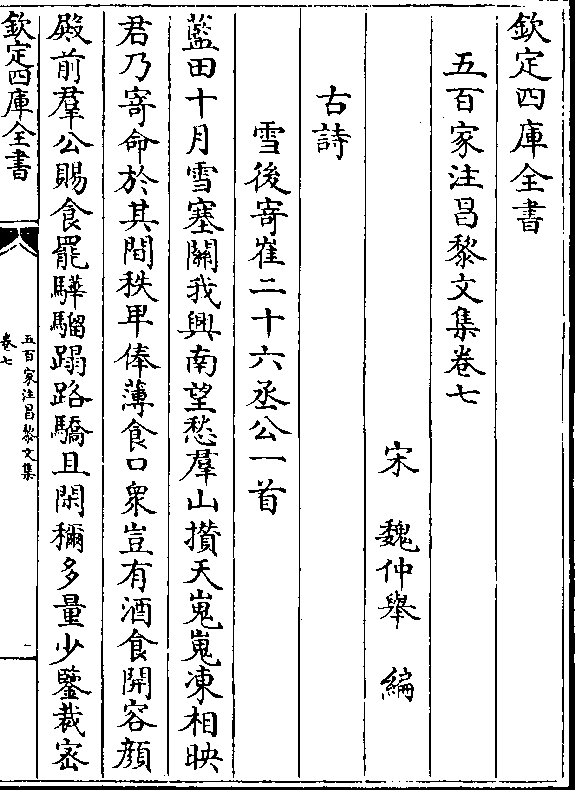 欽定四庫全書
五百家注昌黎文集卷七
宋 魏仲舉 編
古詩
雪後寄崔二十六丞公一首
藍田十月雪塞關我興南望愁羣山攢天嵬嵬凍相映
君乃寄命於其間秩卑俸薄食口衆豈有酒食開容顔
殿前羣公賜食罷驊騮蹋路驕且閑稱多量少鑒裁密
欽定四庫全書
五百家注昌黎文集
卷七
一